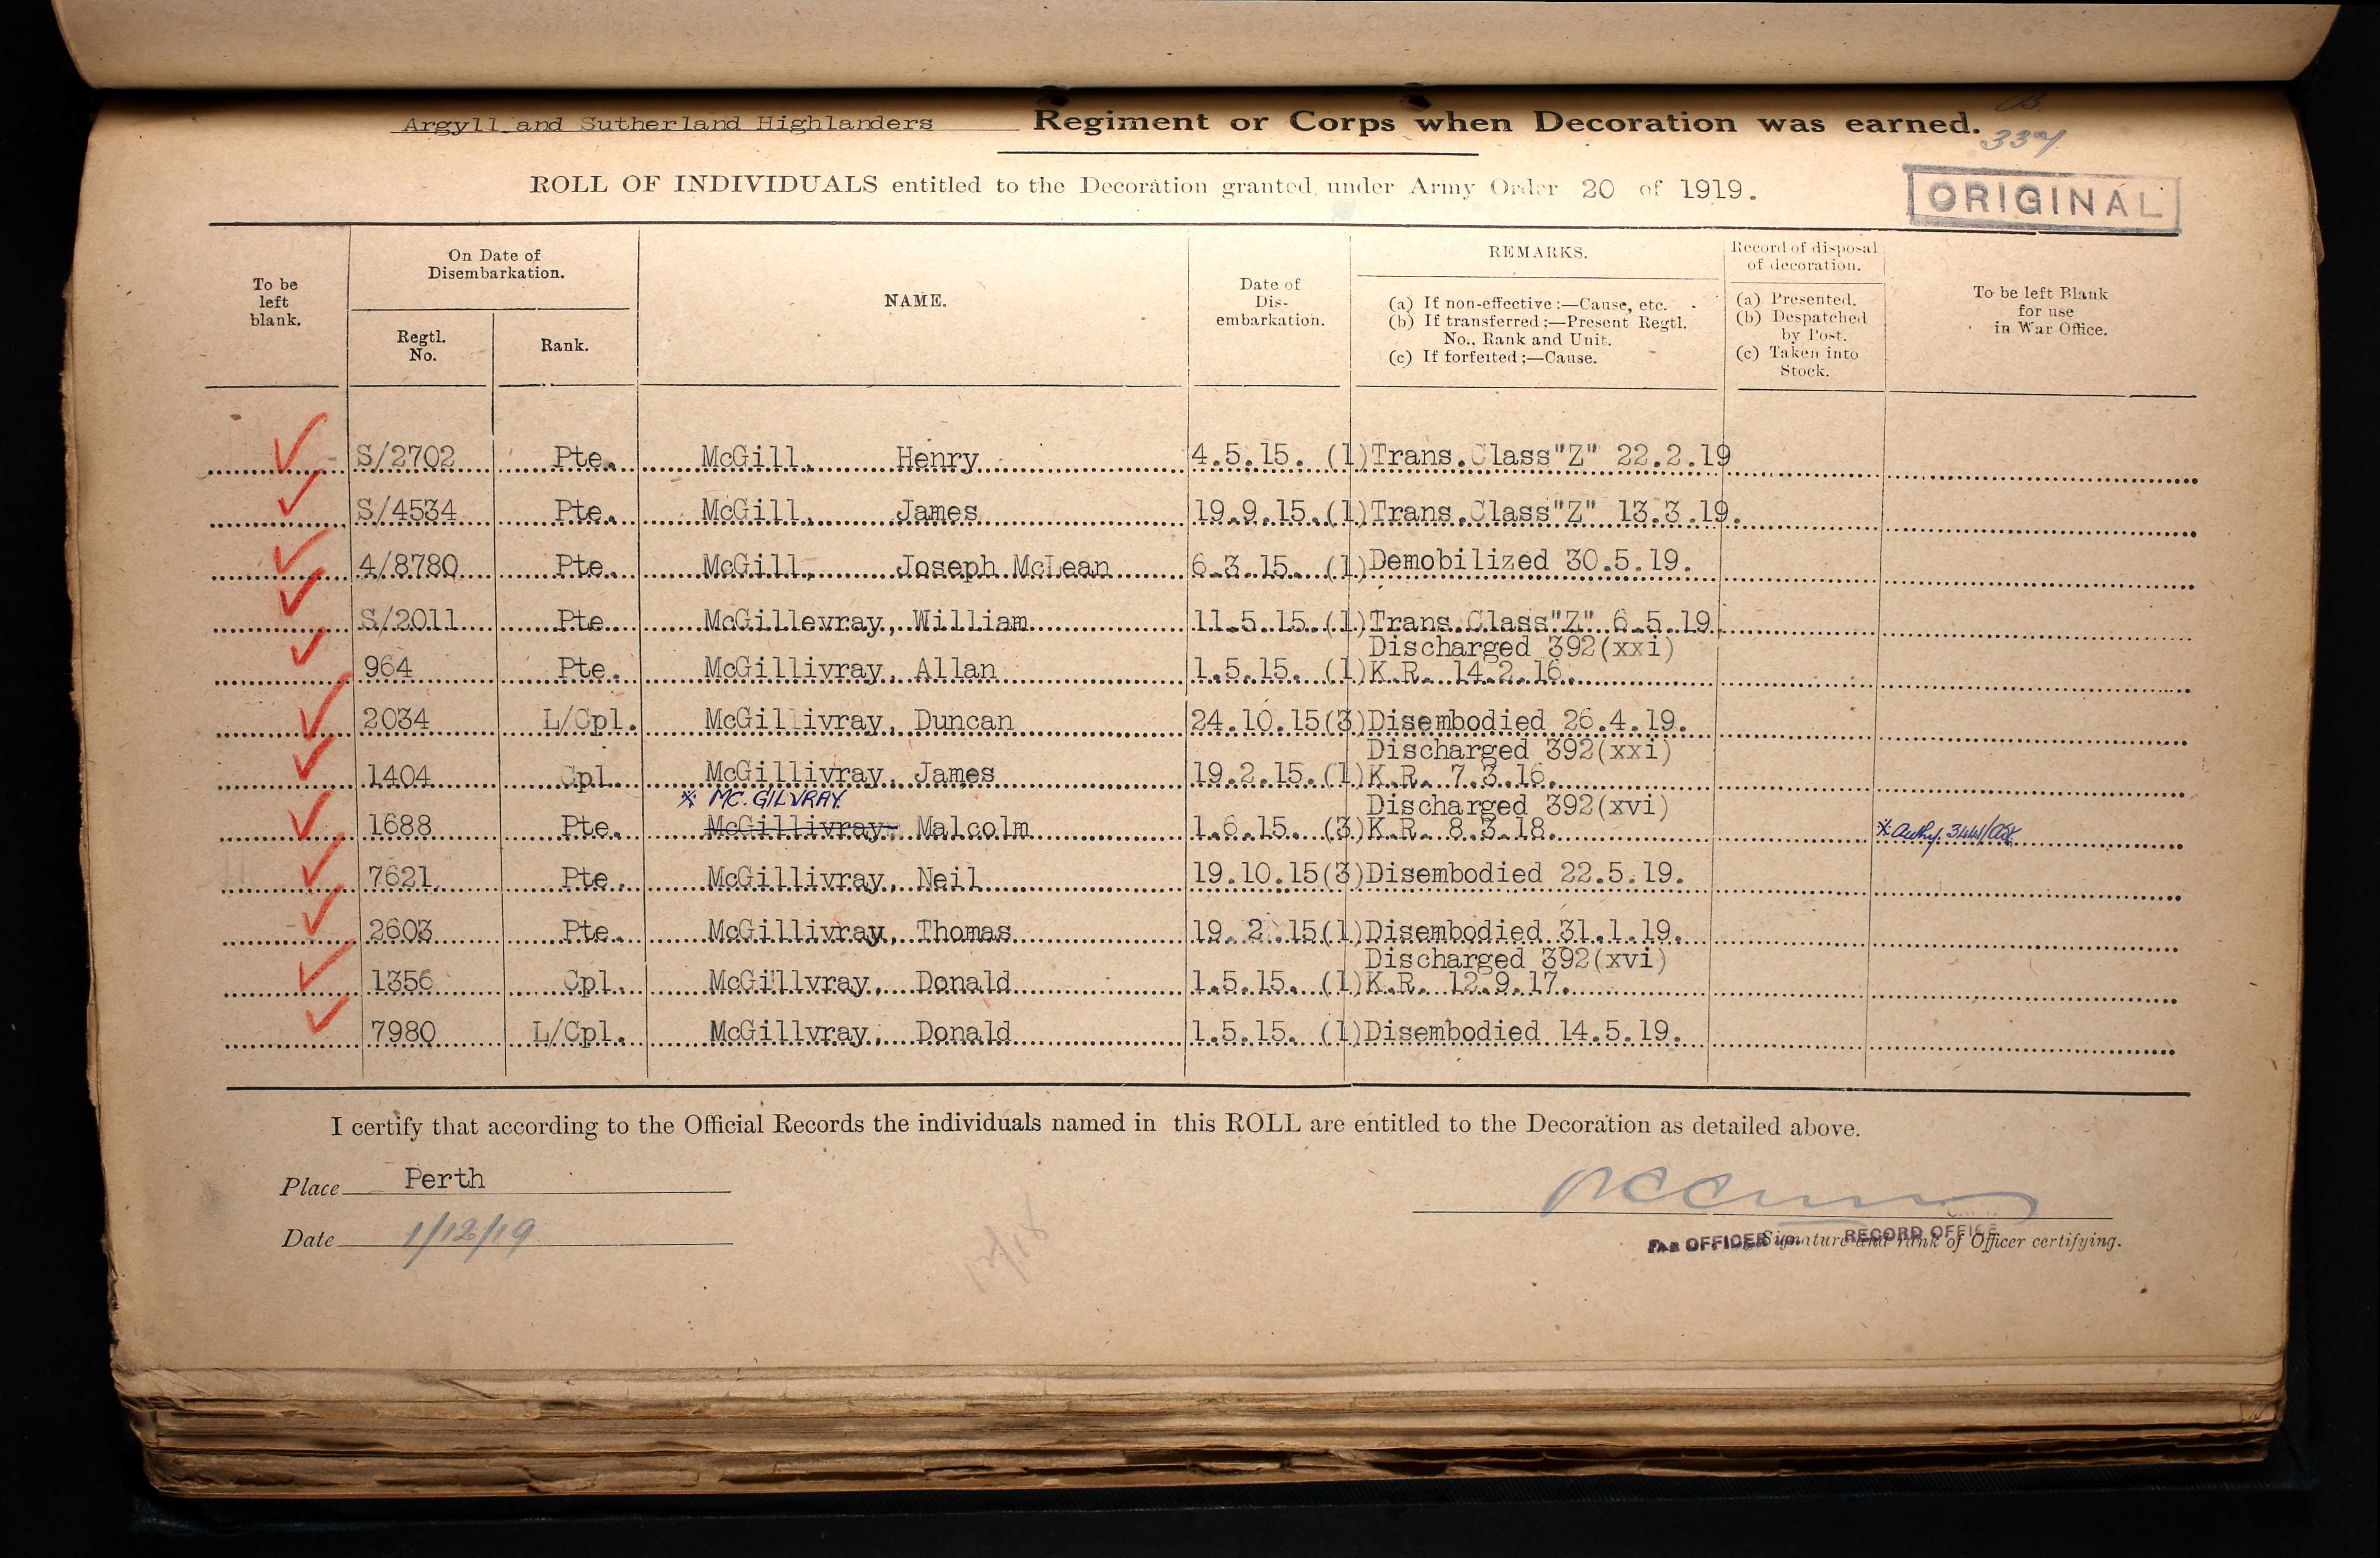 Argyll and Sutherland Highlanders Regiment or Corps when Decoration was earned.
ROLL OF INDIVIDUALS entitled to the Decoration granted under Army Order 20 of 1919.
ORIGINAL
To be left blank.
On Date of Disembarkation.
Regtl. No.
Rank.
NAME.
Date of Dis-embarkation.
REMARKS.
(a) If non-effective:—Cause, etc.
(b) If transferred;—Present Regtl. No., Rank and Unit.
(c) If forfeited;—Cause.
Record of disposal of decoration.
(a) Presented.
(b) Despatched by Post.
(c) Taken into Stock.
To be left Blank for use in War Office.
S/2702 Pte. McGill, Henry 4.5.15. (1) Trans.Class"Z" 22.2.19
S/4534 Pte. McGill, James 19.9.15.(1) Trans.Class"Z" 13.3.19.
4/8780 Pte. McGill, Joseph McLean 6.3.15. (1) Demobilized 30.5.19.
S/2011 Pte McGillevray, William 11.5.15.(1) Trans.Class"Z" 6.5.19
Discharged 392(xxi)
964 Pte. McGillivray, Allan 1.5.15. (1) K.R. 14.2.16.
2034 L/Cpl. McGillivray, Duncan 24.10.15(3) Disembodied 26.4.19.
Discharged 392(xxi)
1404 Cpl. McGillivray, James 19.2.15.(1) K.R. 7.3.16.
* MC.GILVRAY. Discharged 392(xvi)
1688 Pte. McGillivray Malcolm 1.6.15. (3) K.R. 8.3.18. * Authy. 3441/Adt.
7621 Pte. McGillivray, Neil 19.10.15(3) Disembodied 22.5.19.
2603 Pte. McGillivray, Thomas 19.2.15(1) Disembodied 31.1.19.
Discharged 392(xvi)
1356 Cpl. McGillvray, Donald 1.5.15. (1) K.R. 12.9.17.
7980 L/Cpl. McGillvray, Donald 1.5.15. (1) Disembodied 14.5.19.
I certify that according to the Official Records the individuals named in this ROLL are entitled to the Decoration as detailed above.
Place Perth
Date 1/12/19
OFFICER i/c. RECORD OFFICE
Signature and rank of Officer certifying.